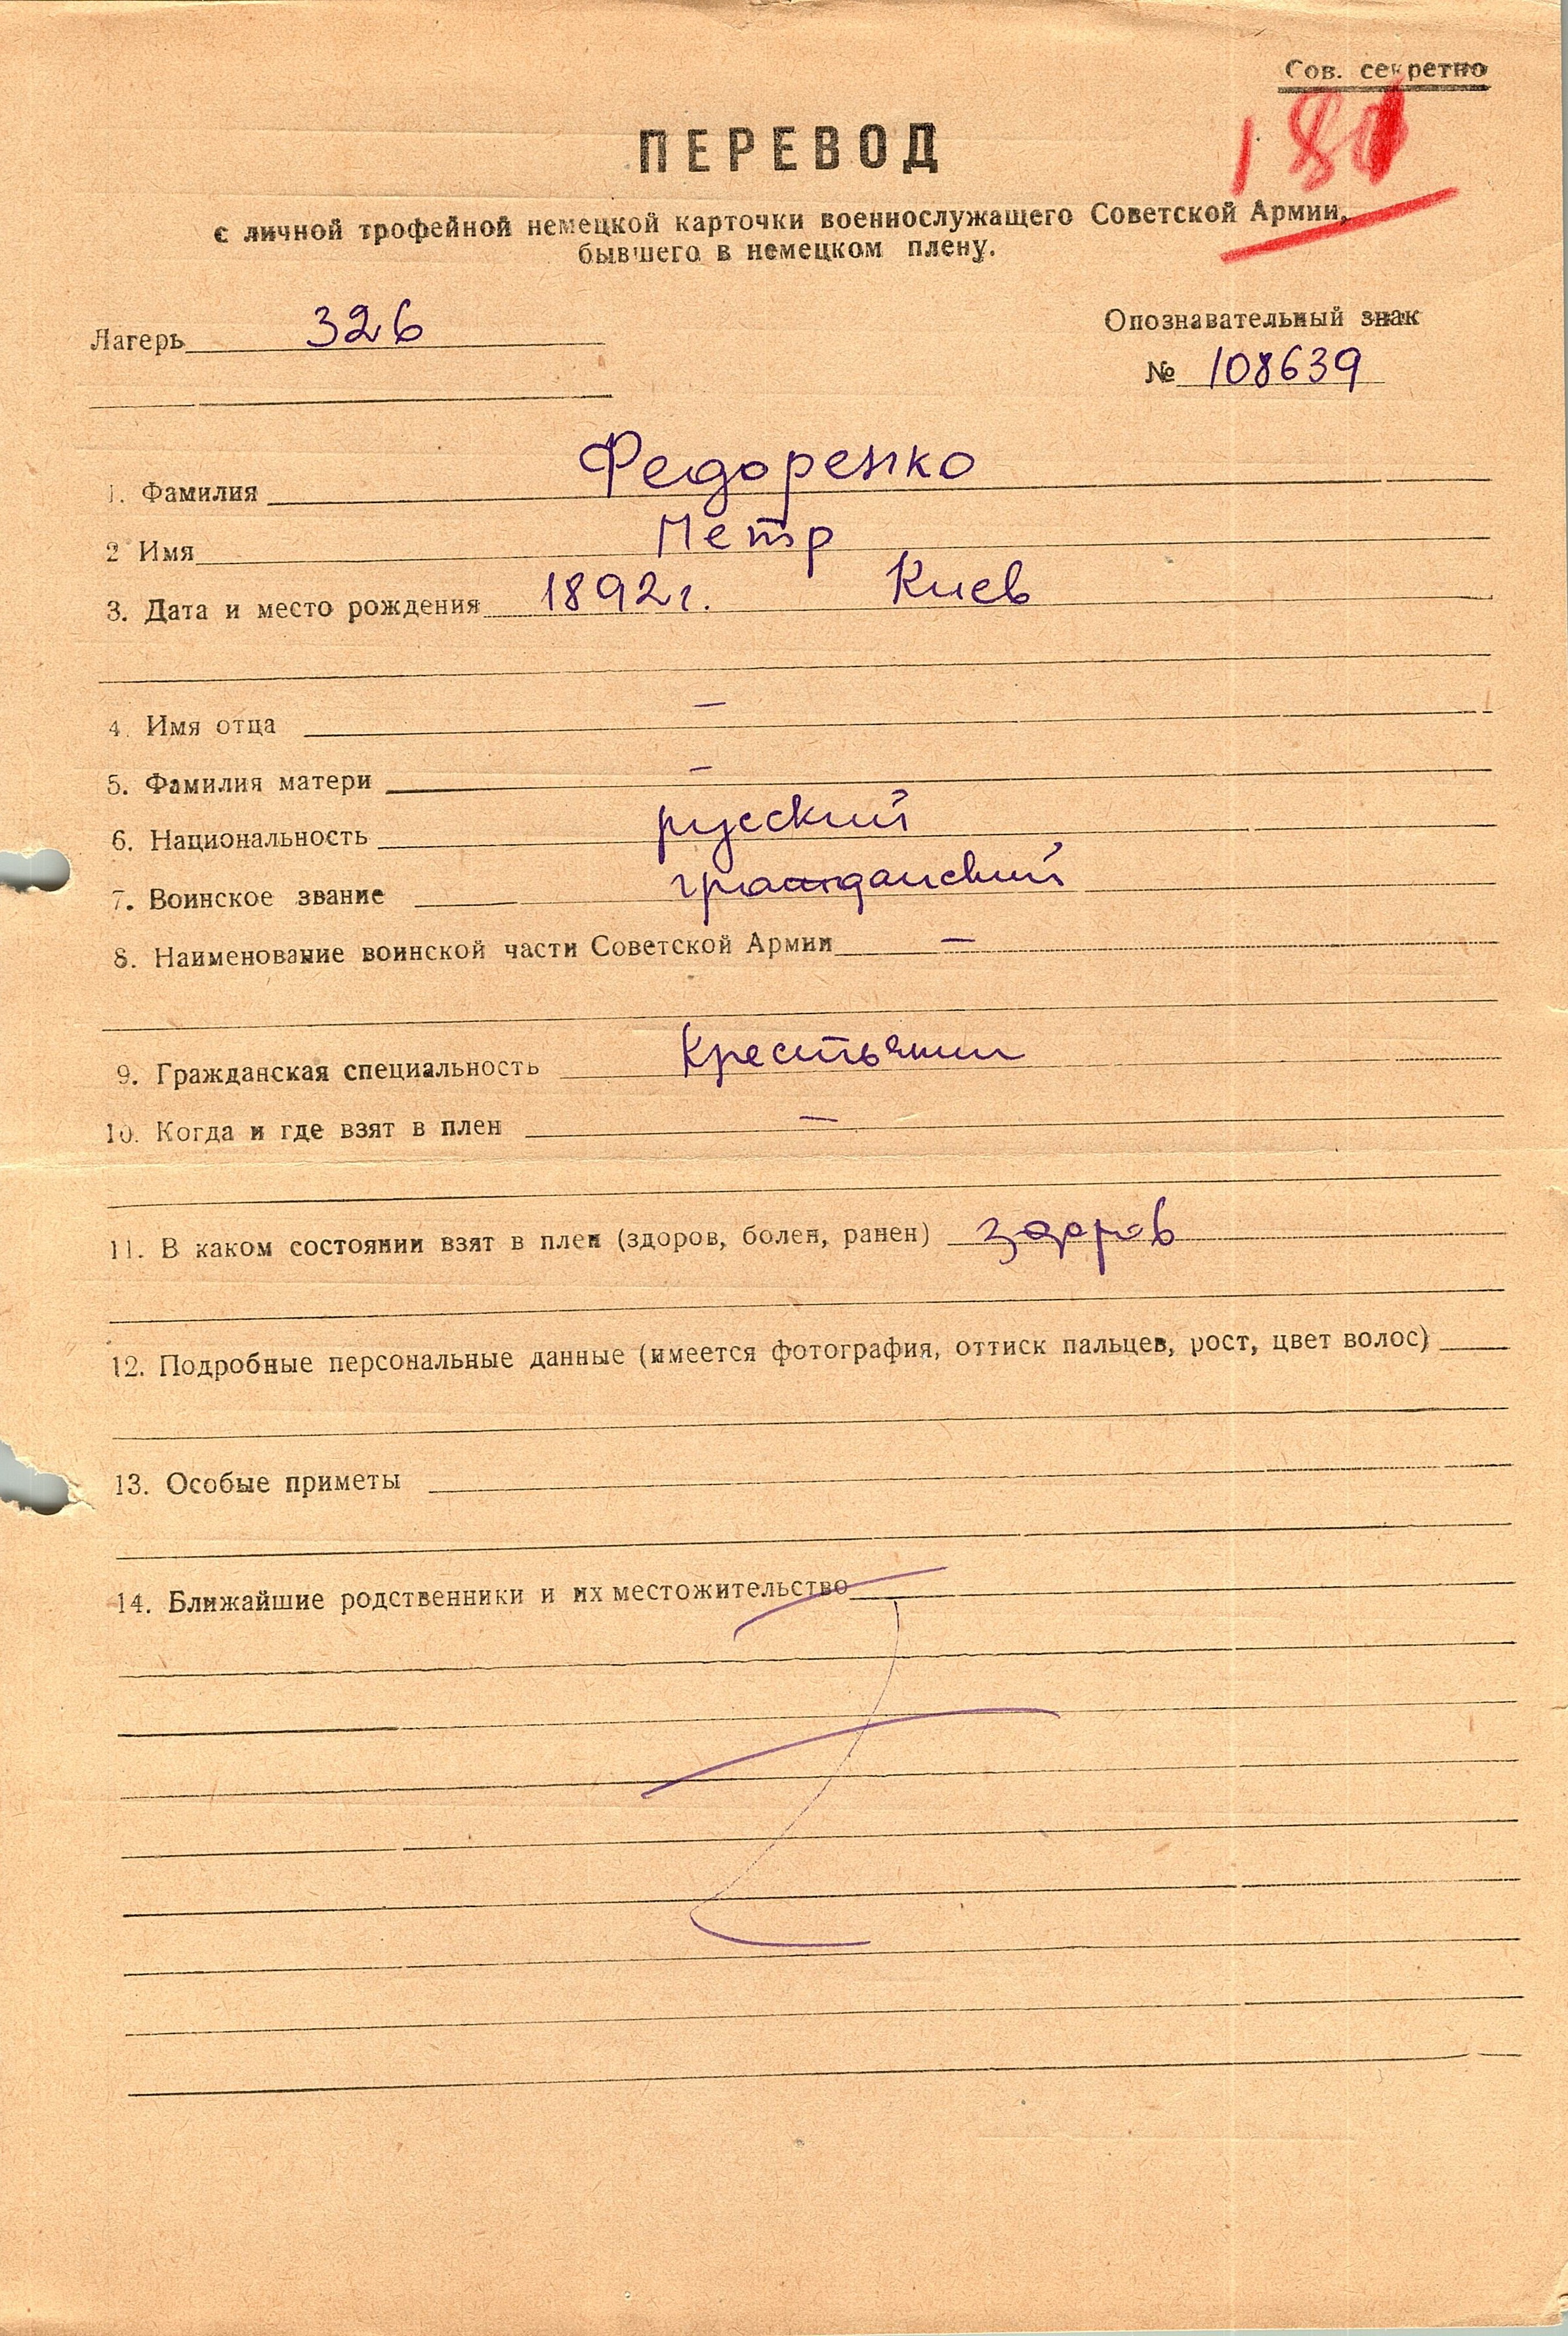 Сов. секретно
ПЕРЕВОД
с личной трофейной немецкой карточки военнослужащего Советской Армии,
бывшего в немецком плену.
Лагерь 326
Опознавательный знак
№ 108639
1. Фамилия Федоренко
2 Имя Петр
3. Дата и место рождения 1892г. Киев
4. Имя отца –
5. Фамилия матери –
6. Национальность русский
7. Воинское звание гражданский
8. Наименование воинской части Советской Армии –
9. Гражданская специальность крестьянин
10. Когда и где взят в плен –
11. В каком состоянии взят в плен (здоров, болен, ранен) здоров
12. Подробные персональные данные (имеется фотография, оттиск пальцев, рост, цвет волос)
13. Особые приметы
14. Ближайшие родственники и их местожительство